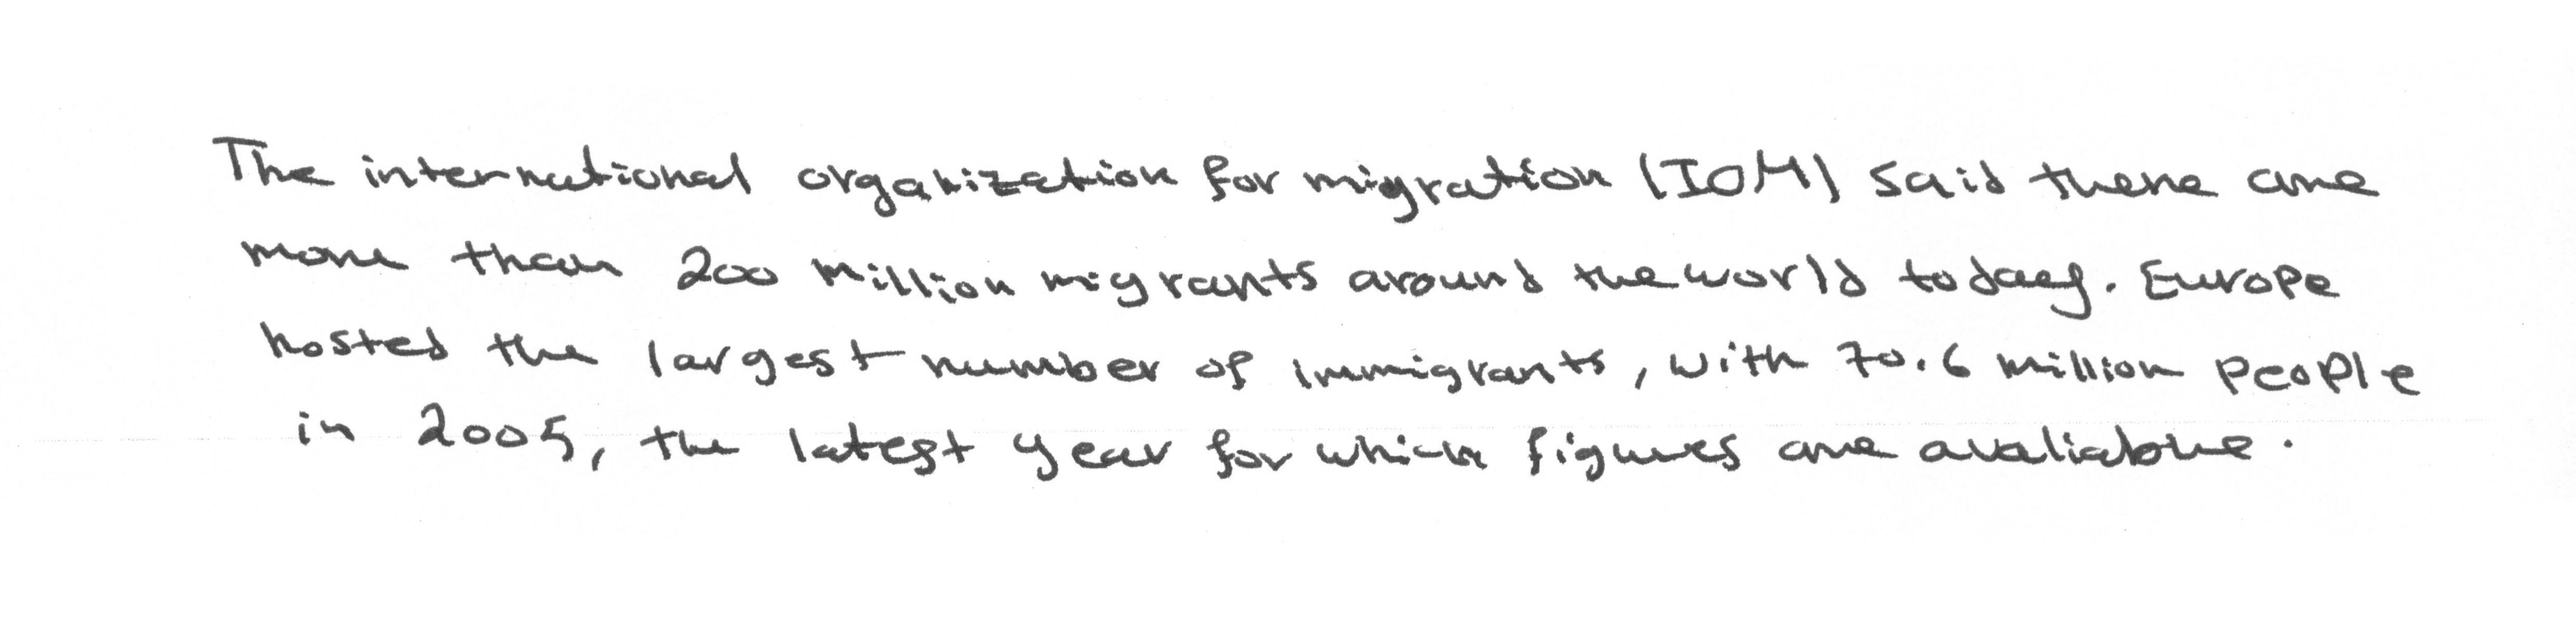 The international organization for migration (IOM) said there are
more than 200 million migrants around the world today. Europe
hosted the largest number of immigrants, with 70.6 million people
in 2005, the latest year for which figures are avaliable.